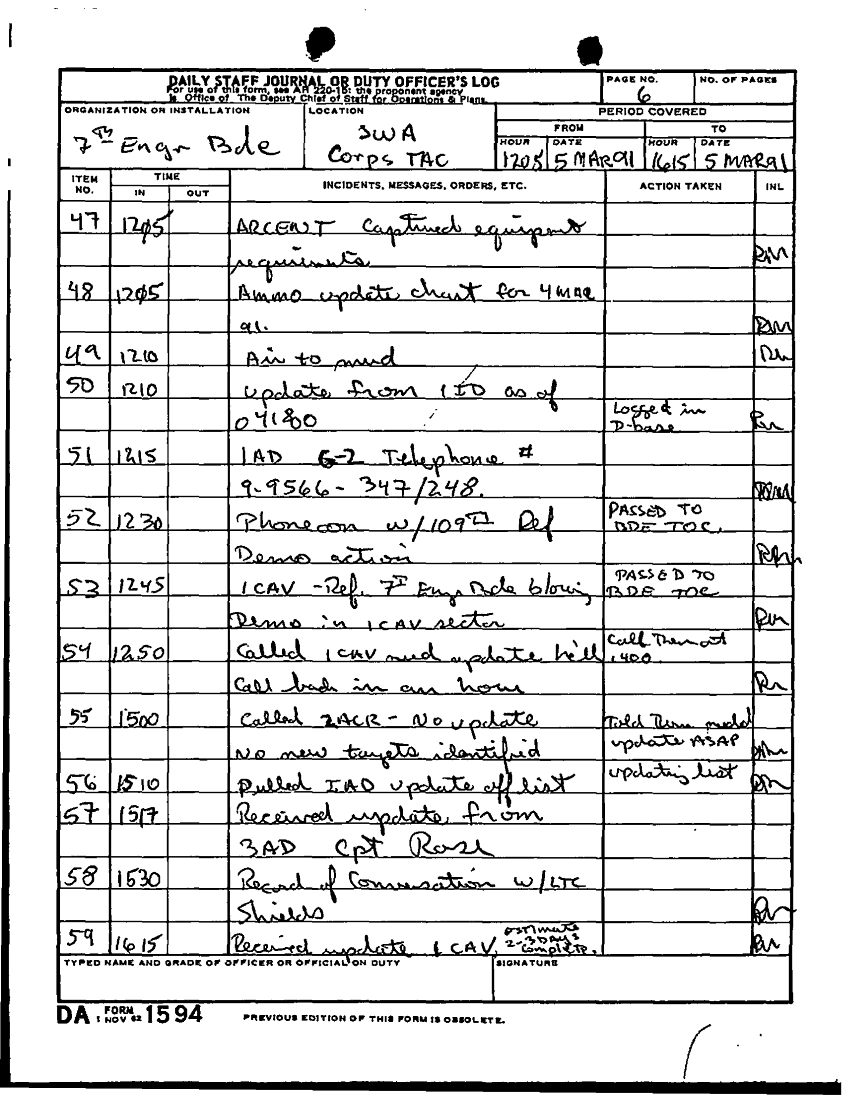 DAILY STAFF JOURNAL OR DUTY OFFICER'S LOG
For use of this form, see AR 220-15: the proponent agency
is Office of The Deputy Chief of Staff for Operations & Plans.
PAGE NO.
6
NO. OF PAGES
ORGANIZATION OR INSTALLATION
7th Engr Bde
LOCATION
SWA
Corps TAC
PERIOD COVERED
FROM TO
HOUR DATE HOUR DATE
1205 5 MAR91 1615 5 MAR91
ITEM NO. TIME IN OUT INCIDENTS, MESSAGES, ORDERS, ETC. ACTION TAKEN INL
47 1205 ARCENT Captured equipment
requirements
48 1205 Ammo update chart for 4 MAR
91.
49 1210 Air to mud
50 1210 update from 1ID as of
041800 Logged in
D-base
51 1215 1AD G-2 Telephone #
9-9566-347/248.
52 1230 Phonecon w/109th Ref PASSED TO
BDE TOC.
Demo action
53 1245 1CAV -Ref. 7th Engr Bde blowing PASSED TO
BDE TOC
Demo in 1CAV sector
54 1250 Called 1CAV need update he'll Call Them at
1400.
Call back in an hour
55 1500 Called 2ACR - No update Told Them need
No new targets identified update ASAP
56 1510 Pulled 1AD update off list updating list
57 1517 Received update from
3AD Cpt Rose
58 1530 Record of Conversation w/LTC
Shields
59 1615 Received update 1CAV, estimate
2-3 Days
complete.
TYPED NAME AND GRADE OF OFFICER OR OFFICIAL ON DUTY SIGNATURE
DA FORM 1 NOV 62 1594 PREVIOUS EDITION OF THIS FORM IS OBSOLETE.